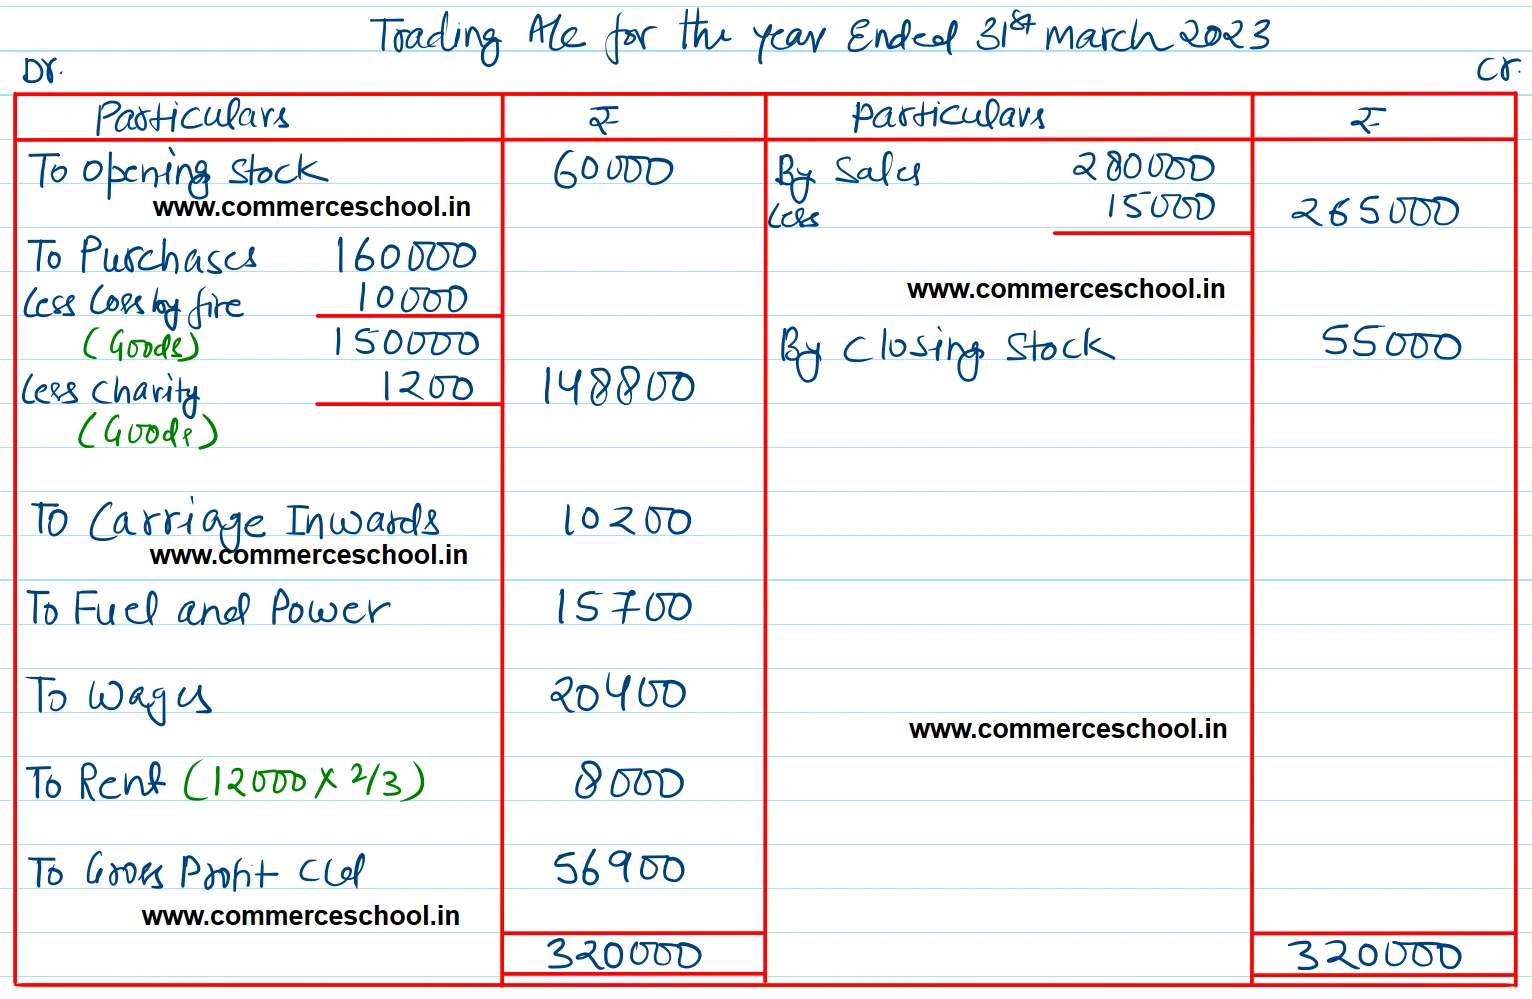 Trading A/c for the year Ended 31st March 2023
Dr. Cr.
Particulars ₹ Particulars ₹
To Opening Stock 60000 By Sales 280000
www.commerceschool.in
Less 15000 265000
To Purchases 160000
Less Loss by fire 10000
www.commerceschool.in
(Goods) 150000 By Closing Stock 55000
Less Charity 1200 148800
(Goods)
To Carriage Inwards 10200
www.commerceschool.in
To Fuel and Power 15700
To Wages 20400
www.commerceschool.in
To Rent (12000 x 2/3) 8000
To Gross Profit C/d 56900
www.commerceschool.in
320000 320000